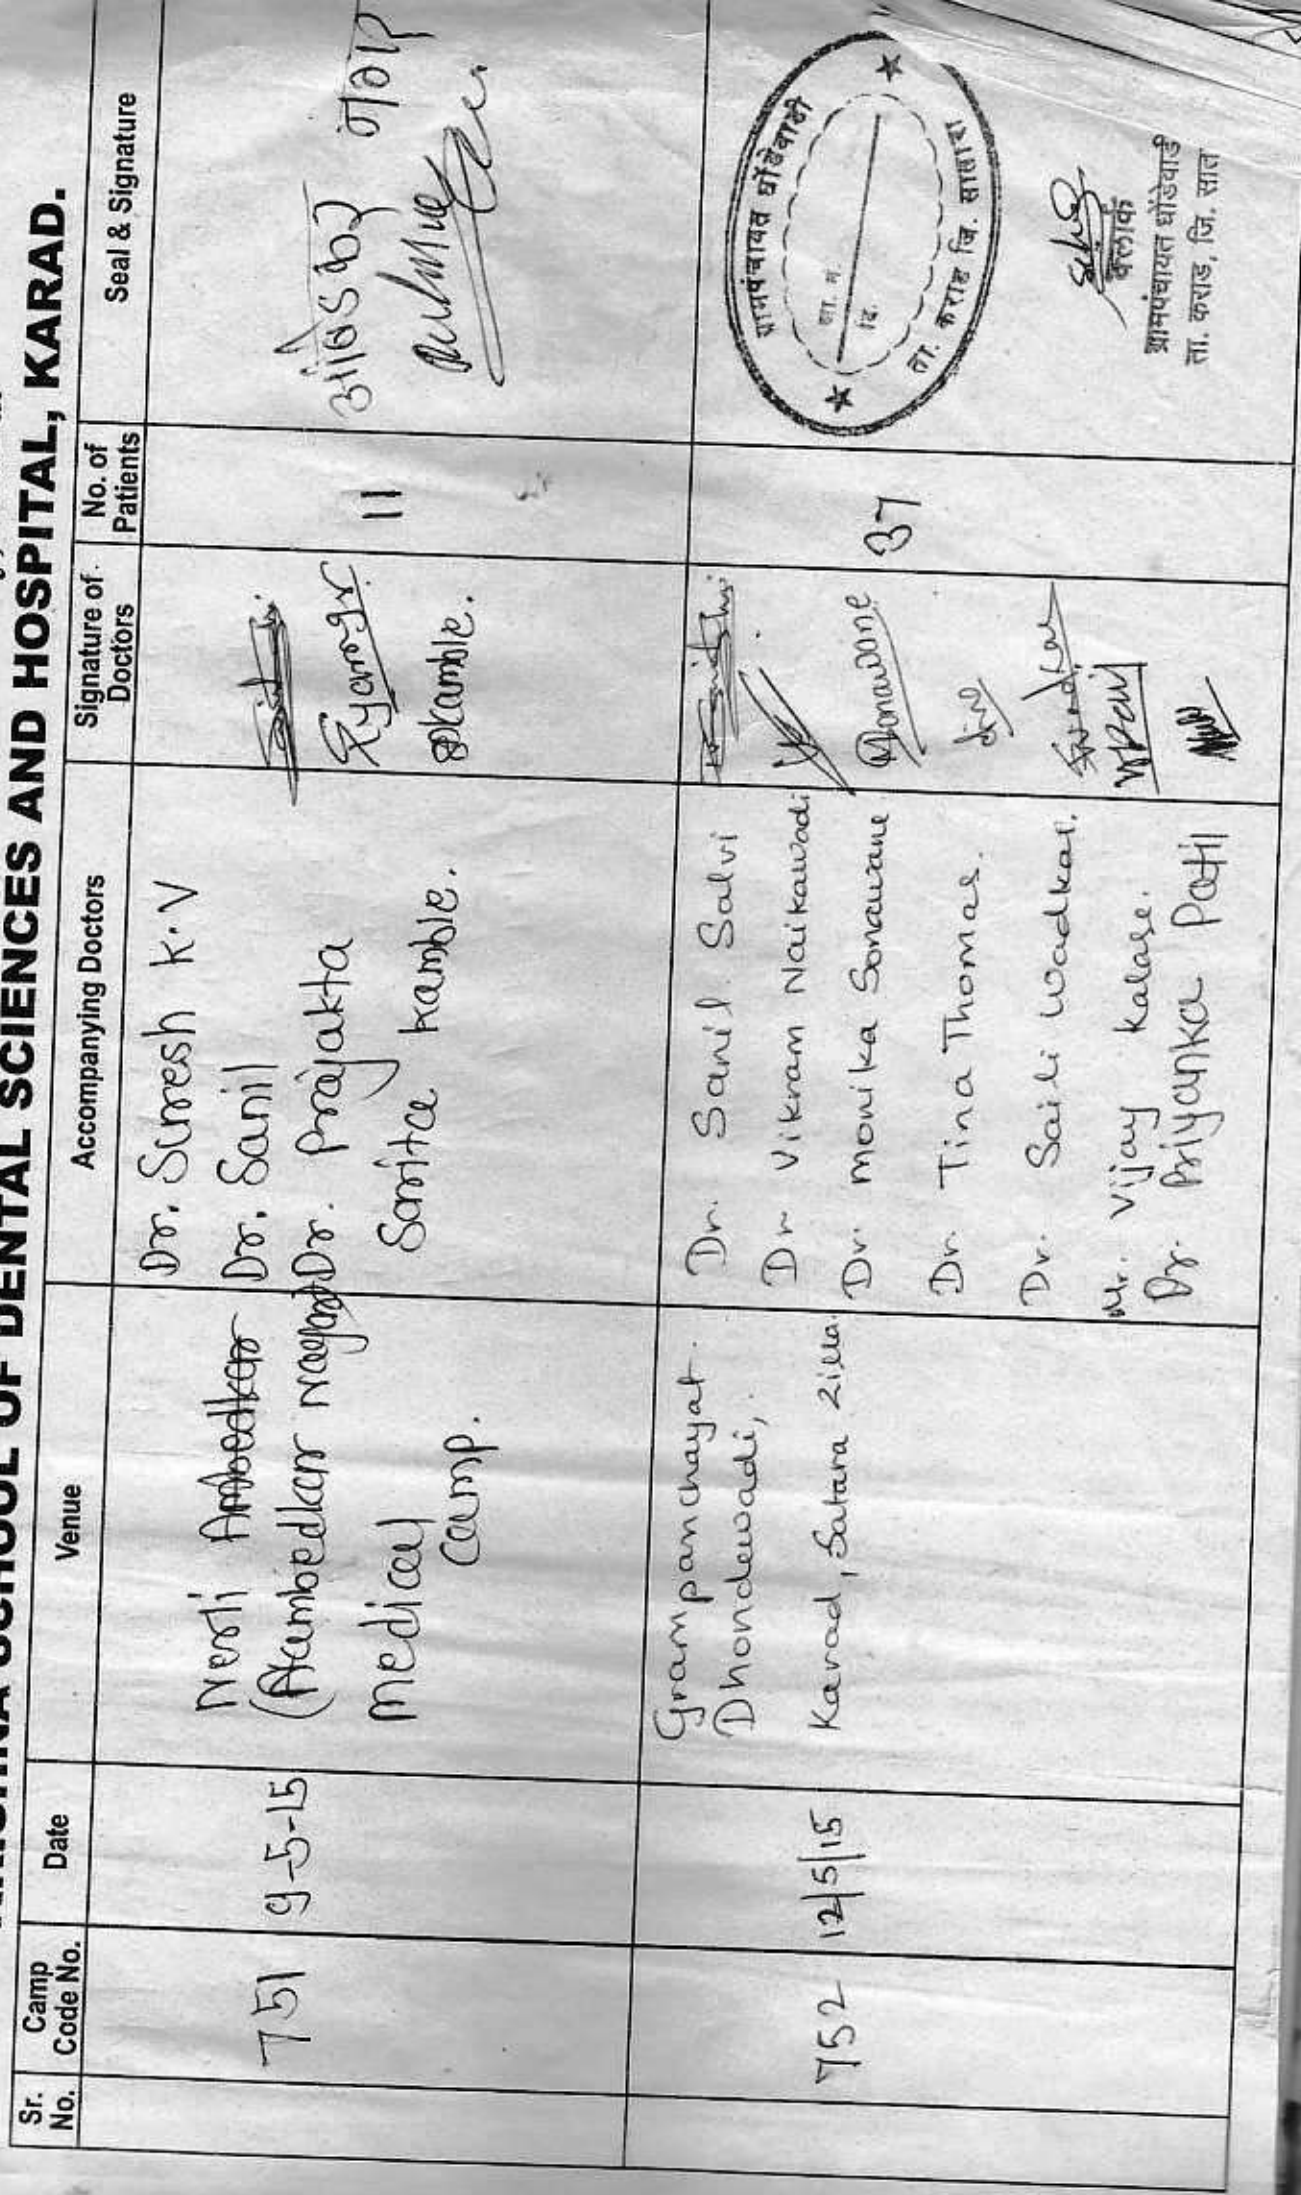 SCHOOL OF DENTAL SCIENCES AND HOSPITAL, KARAD.
Sr. No.
Camp Code No.
Date
Venue
Accompanying Doctors
Signature of Doctors
No. of Patients
Seal & Signature
751
9-5-15
Ambedkar
(Ambedkar Nagar)
Medical
Camp.
Dr. Suresh K.V
Dr. Sanil
Dr. Prajakta
Sarita Kamble.
Kamble.
11
आंबेडकर नगर
752
12/5/15
Grampanchayat
Dhondewadi,
Karad, Satara Zilla
Dr. Sanil Salvi
Dr Vikram Naikawadi
Dr. Monika Sonawane
Dr. Tina Thomas.
Dr. Saili Wadkar.
Mr. Vijay Kalase.
Dr. Priyanka Patil
Sonawane
37
ग्रामपंचायत धोंडेवाडी
जा. नं.
दि.
ता. कराड जि. सातारा
क्लार्क
ग्रामपंचायत धोंडेवाडी
ता. कराड, जि. सात